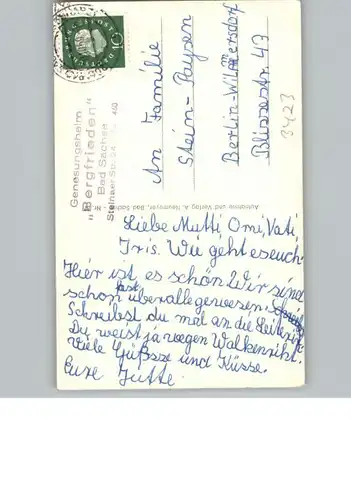 Genesungsheim
„Bergfrieden"
Bad Sachsa
An Familie
Stein-Paysen
Berlin-Wilmersdorf
Blissestr. 43
3423
Aufnahme und Verlag A. Neumeyer, Bad Sachsa
Liebe Mutti, Omi, Vati,
Iris. Wie geht es euch.
Hier ist es schön Wir sind
schon fast überall gewesen.
Schreibst du mal an die Leiterin
Du weist ja wegen Walkenriht.
Viele Grüßsze und Küsse.
Eure Jutte.